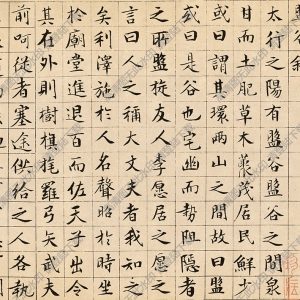 谷叙
太行之陽有盤谷盤谷之間泉
甘而土肥草木藂茂居民鮮少
或曰謂其環兩山之間故曰盤
或曰是谷也宅幽而勢阻隱者
之所盤旋友人李愿居之愿之
言曰人之稱大丈夫者我知之
矣利澤施於人名聲昭於時坐
於廟堂進退百而佐天子出令
其在外則樹旗旄羅弓矢武夫
前呵從者塞途供給之人各執